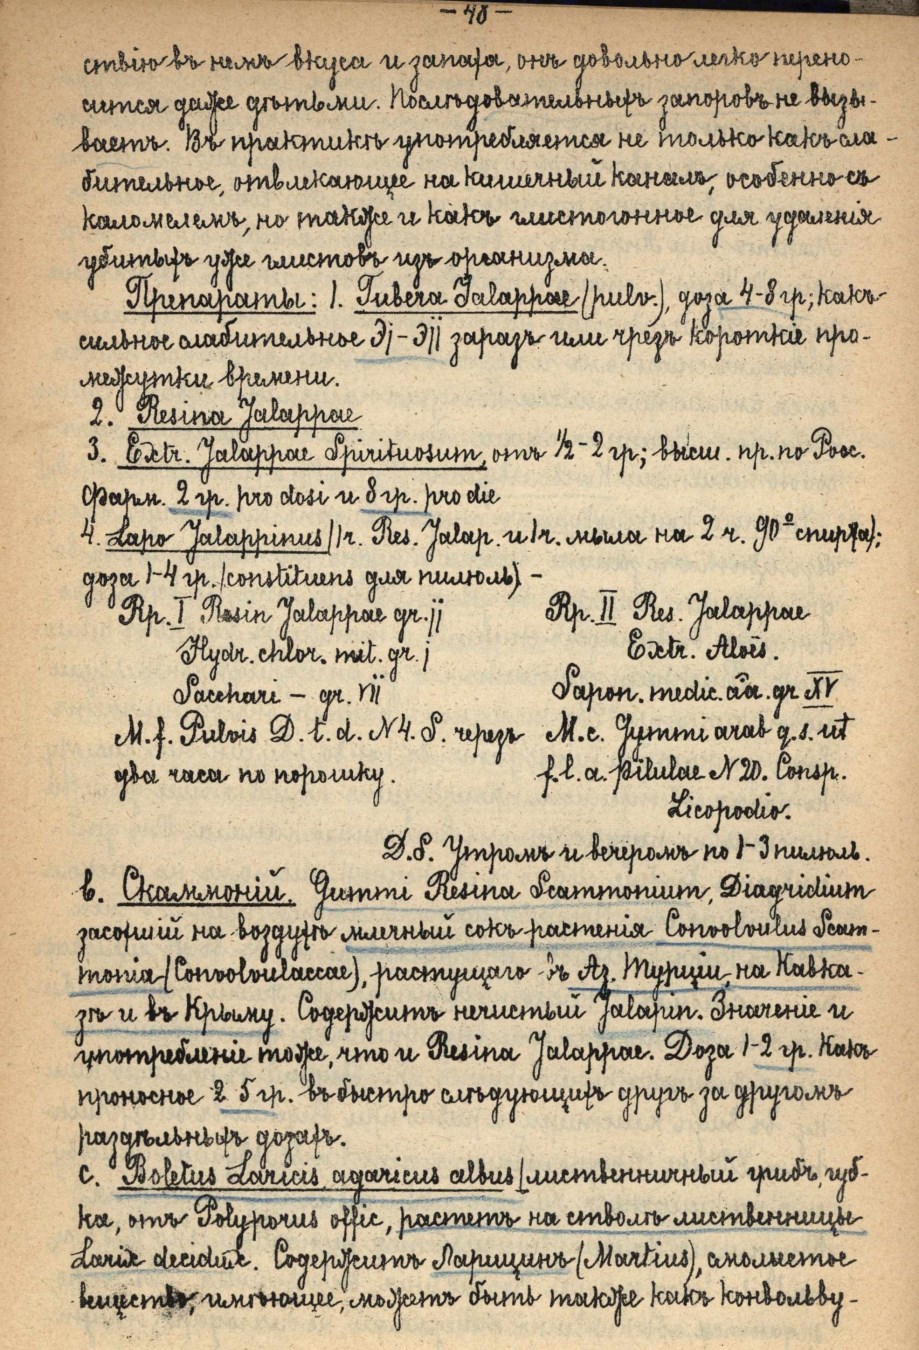 — 48 —
ствію въ немъ вкуса и запаха, онъ довольно легко перено-
сится даже дѣтьми. Послѣдовательныхъ запоровъ не вызы-
ваетъ. Въ практикѣ употребляется не только какъ сла-
бительное, отвлекающее на кишечный каналъ, особенно съ
каломелемъ, но также и какъ глистогонное для удаленія
убитыхъ уже глистовъ изъ организма.
Препараты: 1. Tubera Jalappae (pulv.), доза 4-8 гр; какъ
сильное слабительное ℈j – ℈jj заразъ или чрезъ короткіе про-
межутки времени.
2. Resina Jalappae
3. Extr. Jalappae Spirituosum, отъ ½-2 гр; высш. пр. по Росс.
Фарм. 2 гр. pro dosi и 8 гр. pro die
4. Sapo Jalappinus (1 ч. Res. Jalap. и 1 ч. мыла на 2 ч. 90° спирта);
доза 1-4 гр. (constituens для пилюль). –
Rp. I Resin Jalappae gr. jj
Hydr. chlor. mit. gr. j
Sacchari – gr. VII
M. f. Pulvis D. t. d. N 4. S. черезъ
два часа по порошку.
Rp. II Res. Jalappae
Extr. Aloës.
Sapon. medic. āā. gr XV
M. c. Gymmi arab q. s. ut
f. l. a. pilulae N 20. Consp.
Licopodio.
D. S. Утромъ и вечеромъ по 1-3 пилюль.
в. Скаммоній. Gummi Resina Scammonium, Diagridium
засохшій на воздухѣ млечный сокъ растенія Convolvulus Scam-
monia (Convolvulaceae), растущаго въ Аз. Турціи, на Кавка-
зѣ и въ Крыму. Содержитъ нечистый Jalapin. Значеніе и
употребленіе тоже, что и Resina Jalappae. Доза 1-2 гр. Какъ
проносное 2 5 гр. въ быстро слѣдующихъ другъ за другомъ
раздѣльныхъ дозахъ.
с. Boletus Laricis, agaricus albus (лиственничный грибъ, губ-
ка, отъ Polyporus offic, растетъ на стволѣ лиственницы
Larix decidux. Содержитъ Ларицинъ (Martius), смолистое
вещество, имѣющее, можетъ быть также какъ конвольву-